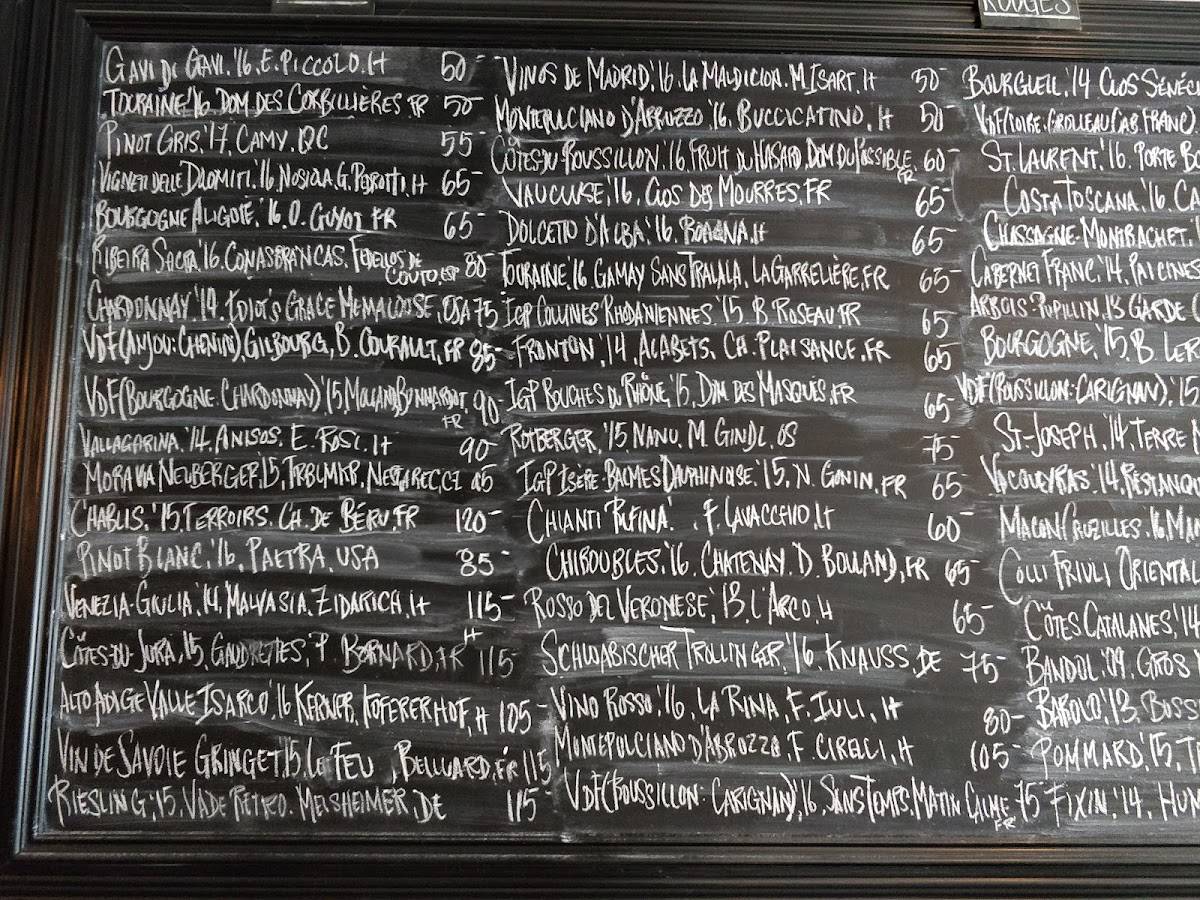 ROUGES
GAVI DI GAVI.'16.E.PICCOLO.It 50-
TOURAINE'16.DOM DES CORBILLIÈRES FR 50-
PINOT GRIS.'17.CAMY.QC 55
VIGNETI DELLE DOLOMITI.'16.NOSIOLA.G.PEDROTTI.It 65-
BOURGOGNE ALIGOTÉ.'16.O.GUYOT.FR 65
RIBEIRA SACRA.'16.CONASBRANCAS.FEDELLOS DE COUTO.ESP 80-
CHARDONNAY.'14.IDIOT'S GRACE MEMALOOSE.USA 75
VDF(ANJOU:CHENIN)GILBOURG,B.COURAULT,FR 85-
VDF(BOURGOGNE:CHARDONNAY)'15. FR 90-
VALLAGARINA.'14.ANISOS.E.ROSI.It 90-
MORAVIA NEUBERGER'15,TRBLMKR,NESTAREC,CZ
CHABLIS.'15.TERROIRS.CH.DE BÉRU,FR 120-
PINOT BLANC.'16.PAETRA.USA 85-
VENEZIA-GIULIA.'14.MALVASIA.ZIDARICH.It 115-
CÔTES-DU-JURA,'15,GAUDRETTES,P.BORNARD,FR 115
ALTO ADIGE VALLE ISARCO,'16 KERNER,KOFERERHOF,It 105-
VIN DE SAVOIE GRINGET,'15.LE FEU,BELLUARD,FR 115
RIESLING,'15,VADE RETRO.MELSHEIMER,DE 115
VINOS DE MADRID.'16.LA MALDICION.M.ISART.It 50-
MONTEPULCIANO D'ABRUZZO.'16.BUCCICATINO.It 50-
CÔTES-DU-ROUSSILLON.'16.FRUIT DU HASARD.DOM DU POSSIBLE.FR 60-
VAUCLUSE,'16.CLOS DES MOURRES,FR 65-
DOLCETTO D'ALBA.'16.ROAGNA.It 65-
TOURAINE'16.GAMAY SANS TRALALA.LA GARRELIÈRE,FR 65-
IGP COLLINES RHODANIENNES.'15.B.ROSEAU.FR 65-
FRONTON,'14,ALABETS,CH.PLAISANCE.FR 65
IGP BOUCHES DU RHÔNE,'15,DOM DES MASQUES,FR 65-
ROTBERGER,'15 NANU,M.GINDL.OS 75
IGP ISÈRE-BALMES DAUPHINOISE.'15.N.GONIN.FR 65-
CHIANTI RUFINA.F.LAVACCHIO.It 60-
CHIROUBLES.'16.CHATENAY.D.BOLLAND,FR 65-
ROSSO DEL VERONESE,'13,L'ARCO.It 65-
SCHWABISCHER TROLLINGER,'16,KNAUSS,DE 75-
VINO ROSSO.'16.LA RINA,F.IULI,It 80-
MONTEPULCIANO D'ABRUZZO,F.CIRELLI,It 105-
VDF(ROUSSILLON:CARIGNAN),'16,SANS TEMPS.MATIN CALME FR 75
BOURGUEIL,'14 CLOS SÉNÉC
VDF(LOIRE:GROLLEAU CAB FRANC)
ST.LAURENT.'16.PORTE BO
COSTA TOSCANA.'16.CA
CHASSAGNE-MONTRACHET,
CABERNET FRANC.'14.PAICINES
ARBOIS-PUPILLIN,'13 GARDE C
BOURGOGNE,'15,B.LER
VDF(ROUSSILLON:CARIGNAN),'15
ST-JOSEPH,'14,TERRE N
VACQUEYRAS.'14,RESTANQU
MACON CRUZILLES.'16.MA
COLLI FRIULI ORIENTAL
CÔTES CATALANES,'14
BANDOL.'09,GROS
BAROLO,'13,BUSS
POMMARD,'15,T
FIXIN.'14,HUM